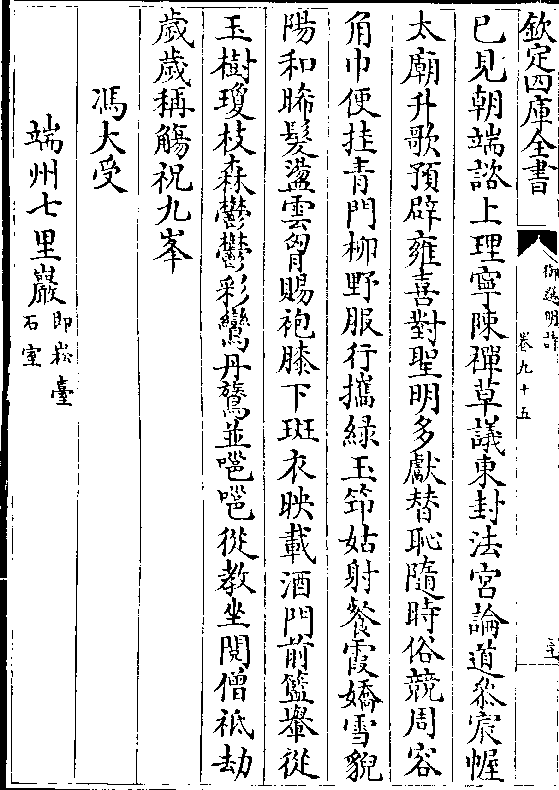 欽定四庫全書
御選明詩
卷九十五
已見朝端諮上理寧陳禪草議東封法宮論道叅宸幄
太廟升歌預辟雍喜對聖明多獻替恥隨時俗競周容
角巾便挂青門柳野服行攜綠玉笻姑射餐霞嬌雪貌
陽和晞髮盪雲胷賜袍膝下斑衣映載酒門前籃轝從
玉樹瓊枝森鬱鬱彩鸞丹鷟並噰噰從教坐閱僧祇劫
歲歲稱觴祝九峯
馮大受
端州七里巖即崧臺石室